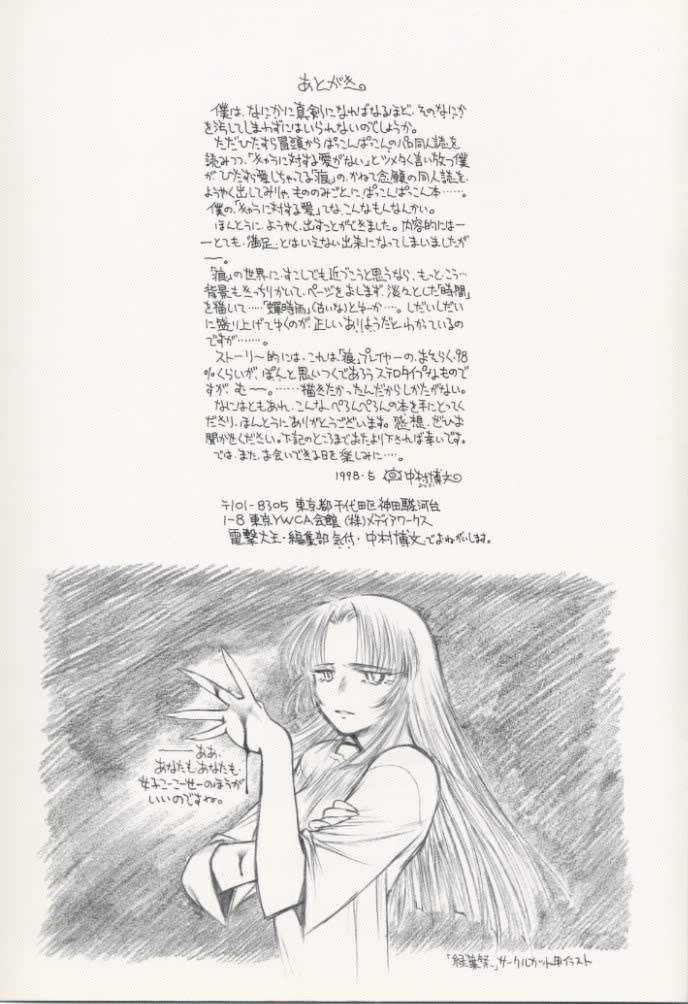 あとがき。
僕は、なにかに真剣になればなるほど、そのなにか
を汚してしまわずにはいられないのでしょうか。
ただひたすら冒頭からぱっこんぱっこんのパロ同人誌を
読みつつ、「きゃらに対する愛がない」とツメタく言い放つ僕
がひたすら愛しちゃってる「痕」の、かねて念願の同人誌を、
ようやく出してみりゃ、もののみごとに、ぱっこんぱっこん本……。
僕の、「きゃらに対する愛」てな、こんなもんなんかい。
ほんとうに、ようやく、出すことができました。内容的には―
―とても、満足、とはいえない出来になってしまいましたが
―。
「痕」の世界に、すこしでも近づこうと思うなら、もっと、こう〜
背景もきっちりかいて、ページをおしまず、淡々とした「時間」
を描いて……「蟬時雨」(古いな)とゆーか…。しだいしだい
に盛り上げてゆくのが、正しいありようだと、わかっているの
ですが………。
ストーリー的には、これは、「痕」プレイヤーの、おそらく、98
%くらいが、ぽんと思いつくであろうステロタイプなものです
が、む――。……描きたかったんだからしかたがない。
なにはともあれ、こんな、ぺろんぺろんの本を手にとってく
ださり、ほんとうにありがとうございます。感想、ぜひお
聞かせください。下記のところまでおたより下されば幸いです。
では、また、お会いできる日を楽しみに…。
1998・5 中村博文
〒101-8305 東京都千代田区神田駿河台
1-8 東京YWCA会館 (株)メディアワークス
電撃大王・編集部気付・中村博文でおねがいします。
――ああ、
あなたも、あなたも、
女子こーこーせーのほうが
いいのですね。
「緑葉祭」サークルカット用イラスト